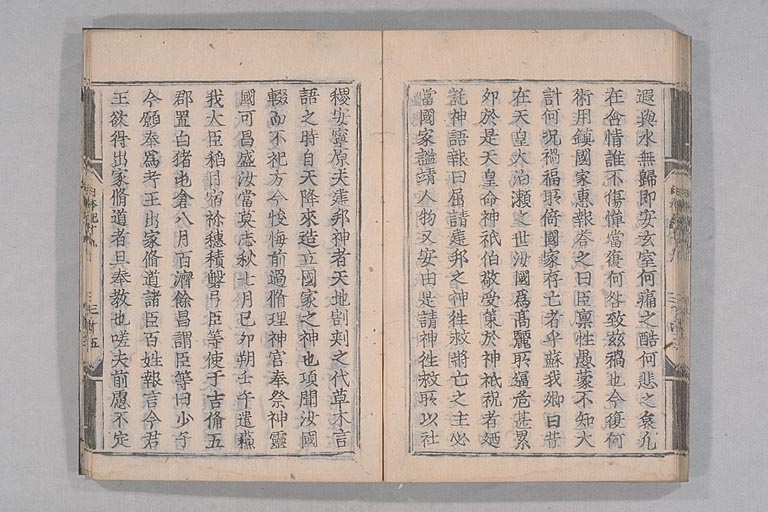 遐與水無歸即安玄室何痛之酷何悲之哀凡
在含情誰不傷悼當復何咎致兹禍也今復何
術用鎮國家惠報荅之曰臣禀性愚蒙不知大
計何况禍福所倚國家存亡者乎蘇我卿曰昔
在天皇大泊瀬之世汝國爲髙麗所逼危甚累
卵於是天皇命神祇伯敬受策於神祇祝者廼
託神語報曰屈請建邦之神徃救將亡之主必
當國家謐靖人物又安由是請神徃救所以社
稷安寧原夫建邦神者天地割判之代草木言
語之時自天降來造立國家之神也項聞汝國
輟而不祀方今悛悔前過脩理神官奉祭神靈
國可昌盛汝當莫忘秋七月己卯朔壬午遣蘇
我大臣稻目宿祢穗積磐弓臣等使于吉脩五
郡置白猪屯倉八月百濟餘昌謂臣等曰少子
今願奉爲考王出家脩道諸臣百姓報言今君
王欲得出家脩道者且奉教也嗟夫前慮不定